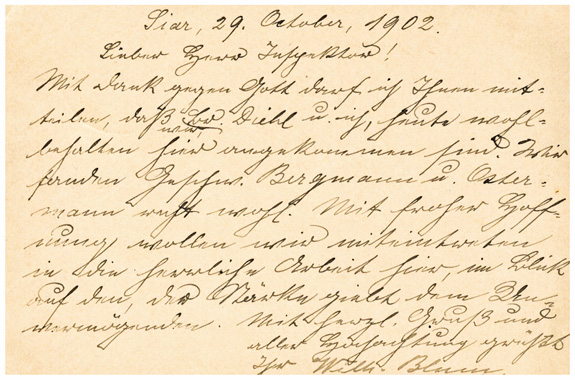 Siar, 29. October, 1902.
Lieber Herr Inspektor!
Mit Dank gegen Gott darf ich Ihnen mit-
teilen, daß wir, Diehl u. ich, heute wohl-
behalten hier angekommen sind. Wir
fanden Geschw. Bergmann u. Oster-
mann recht wohl. Mit froher Hoff-
nung wollen wir miteintreten
in die herrliche Arbeit hier, im Blick
auf den, der Stärke giebt dem Un-
vermögenden. Mit herzl. Gruß und
aller Hochachtung grüßt
Ihr Wilh. Blum.